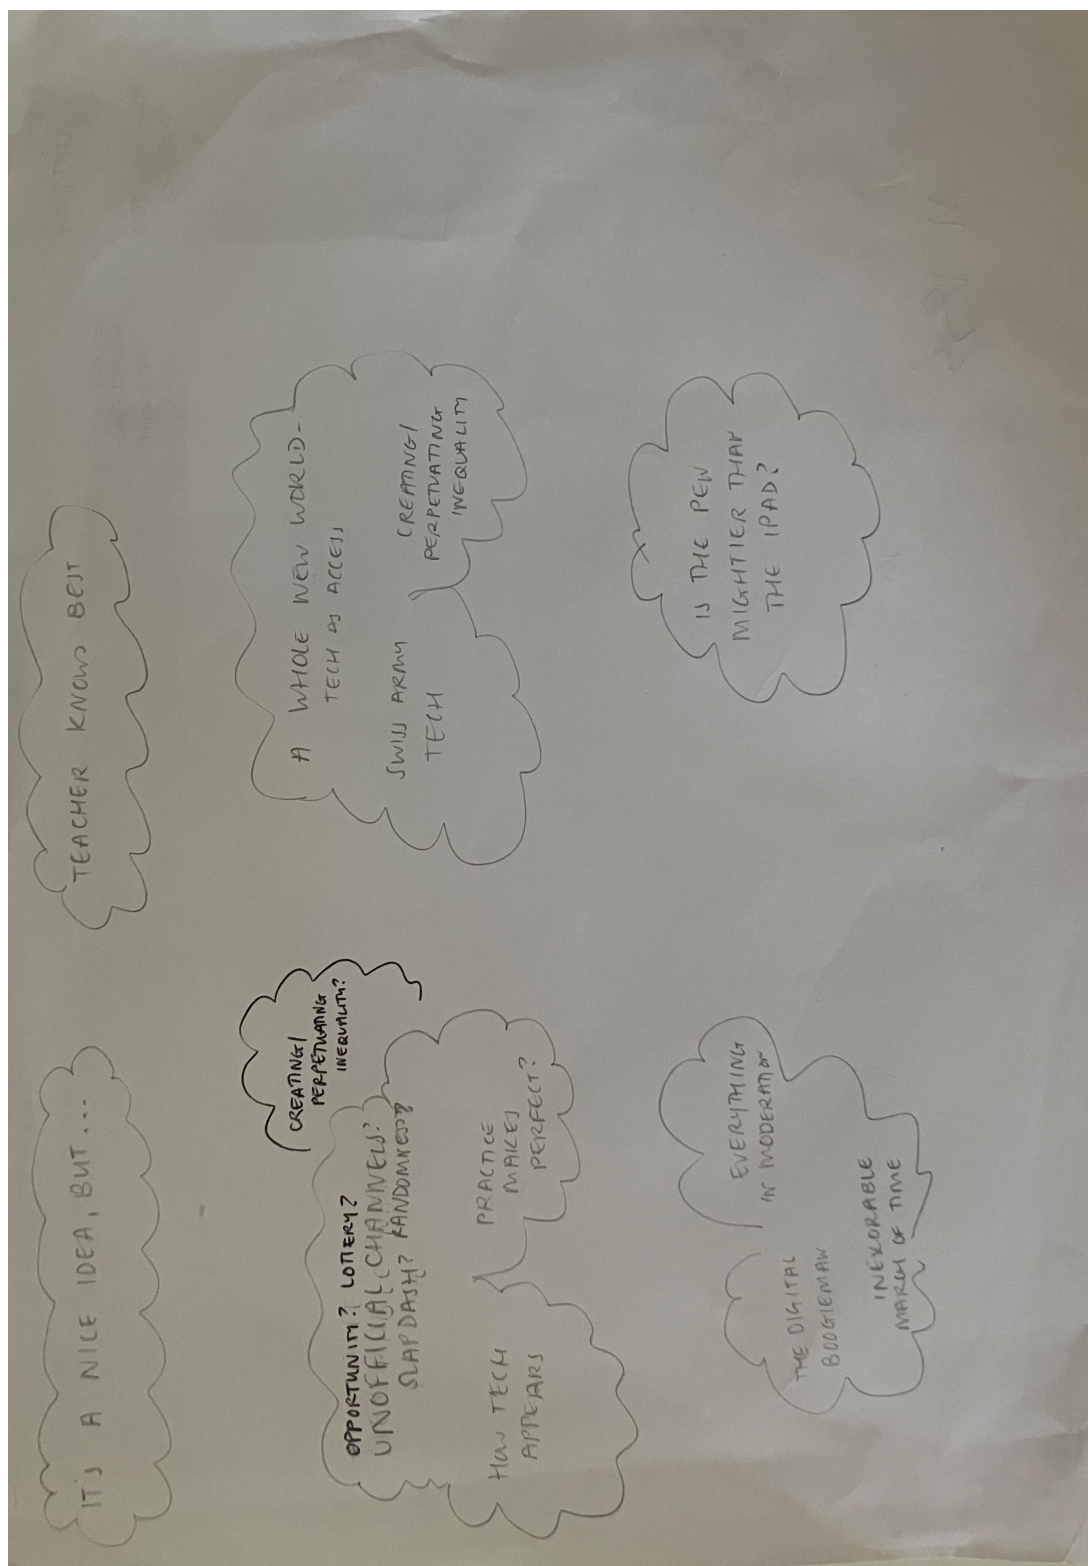 IT'S A NICE IDEA, BUT...
TEACHER KNOWS BEST
CREATING/
PERPETUATING
INEQUALITY?
OPPORTUNITY? LOTTERY?
UNOFFICIAL CHANNELS?
SLAPDASH? RANDOMNESS?
HOW TECH
APPEARS
PRACTICE
MAKES
PERFECT?
A WHOLE NEW WORLD-
TECH AS ACCESS
SWISS ARMY
TECH
CREATING/
PERPETUATING
INEQUALITY
THE DIGITAL
BOOGIEMAN
EVERYTHING
IN MODERATION
INEXORABLE
MARCH OF TIME
IS THE PEN
MIGHTIER THAN
THE IPAD?